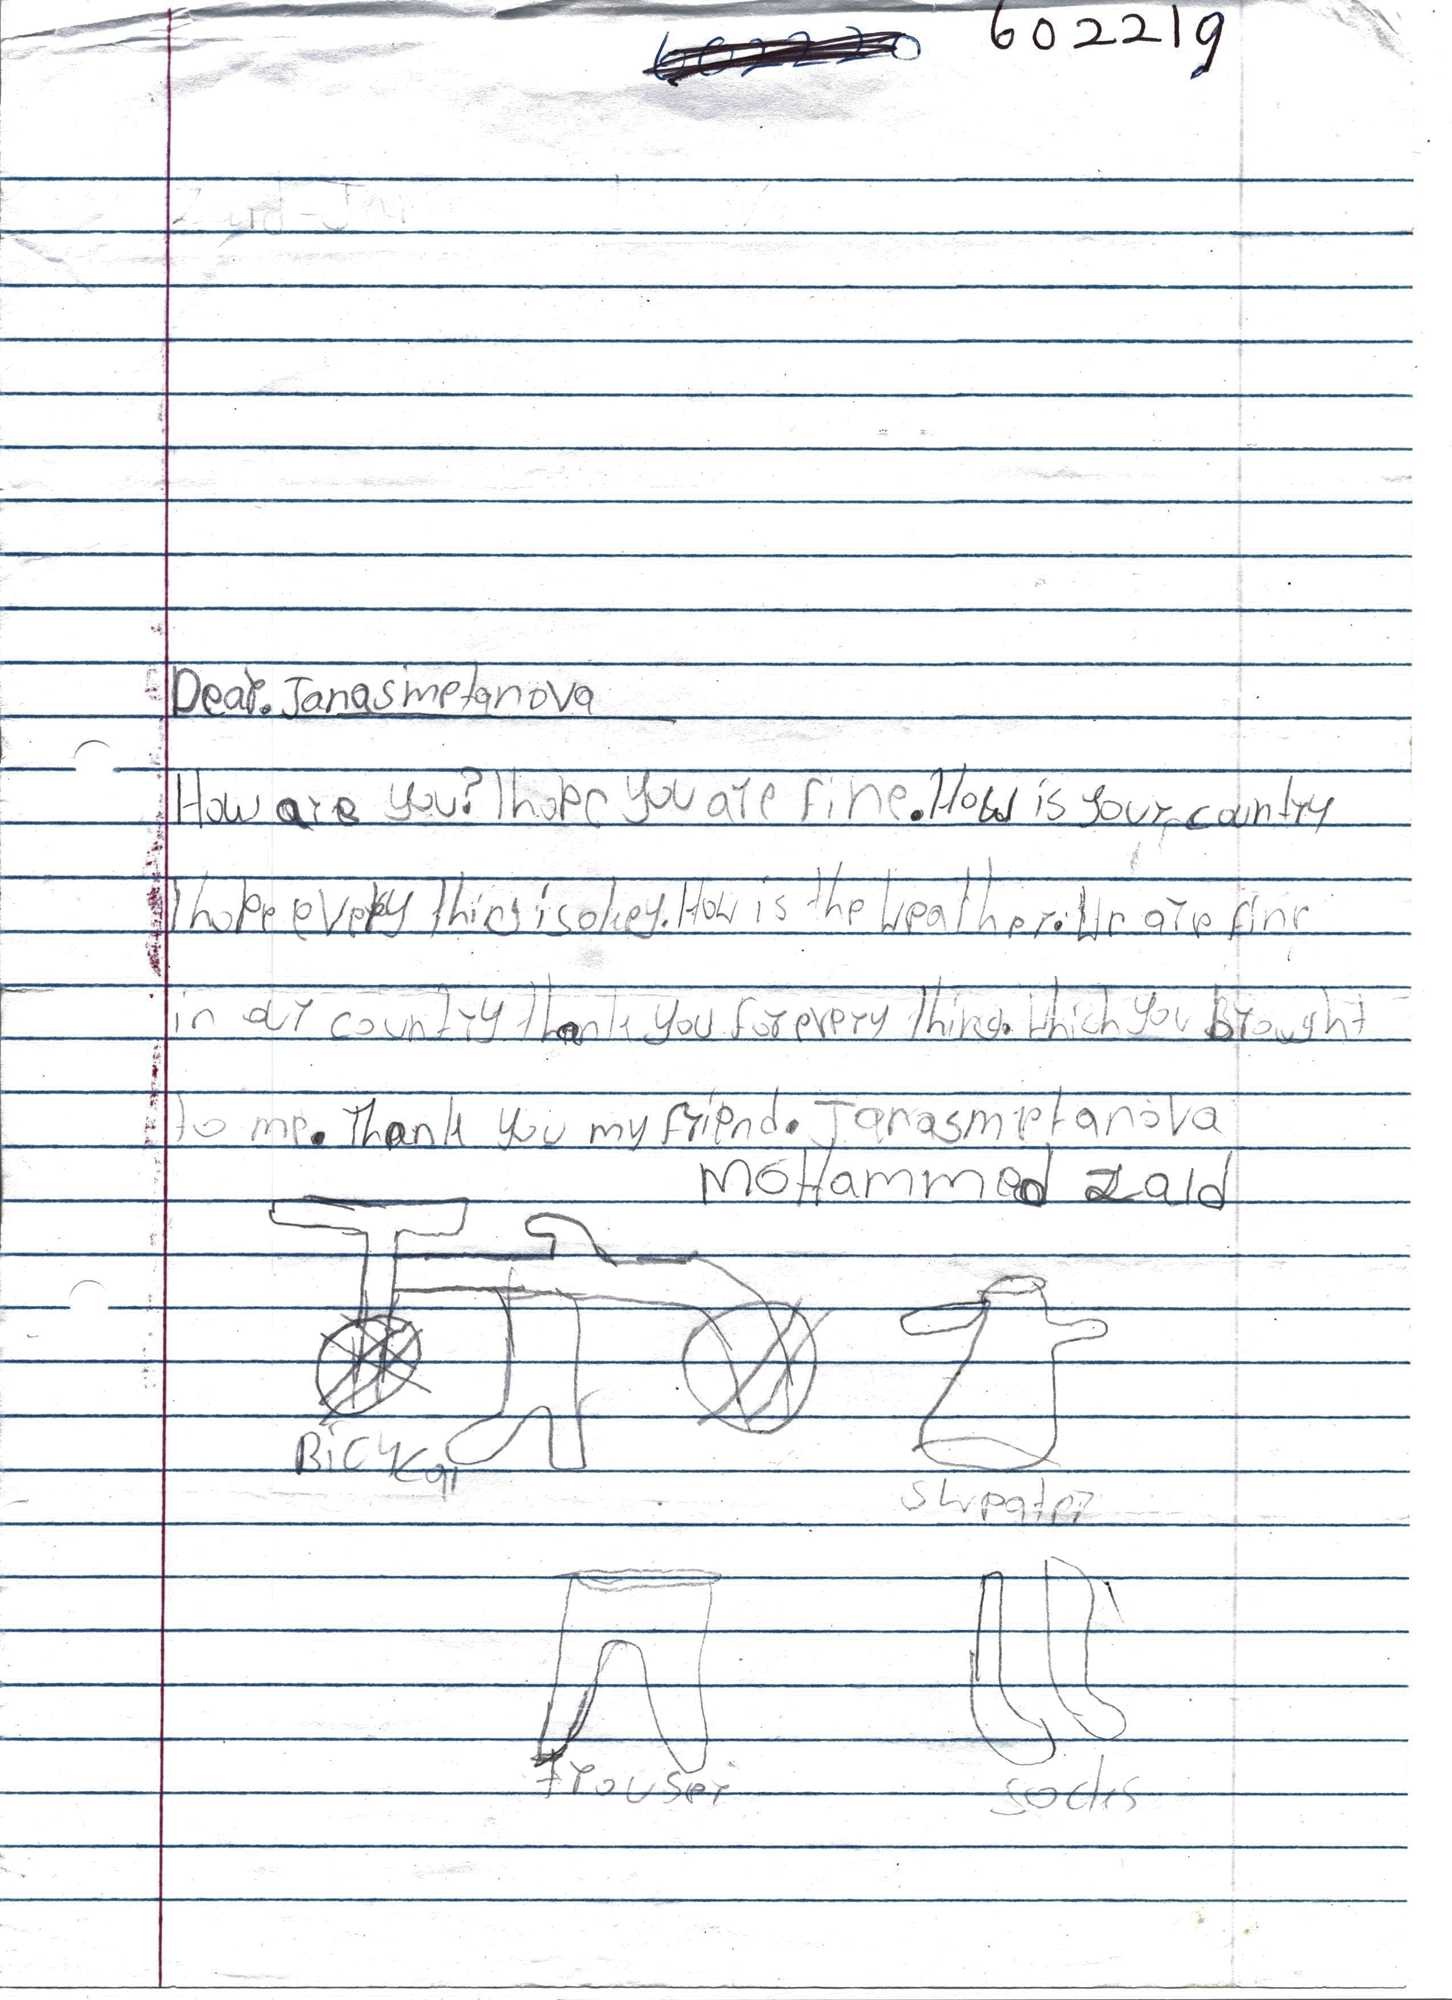 602219
Dear. Janasmetanova
How are you? I hope you are fine. How is your country
I hope every thing is okey. How is the weather. We are fine
in our country thank you for every thing. Which you Brought
to me. Thank you my friend. Janasmetanova
MOHammed zaid
Bicycal
Sweater
trouser
socks